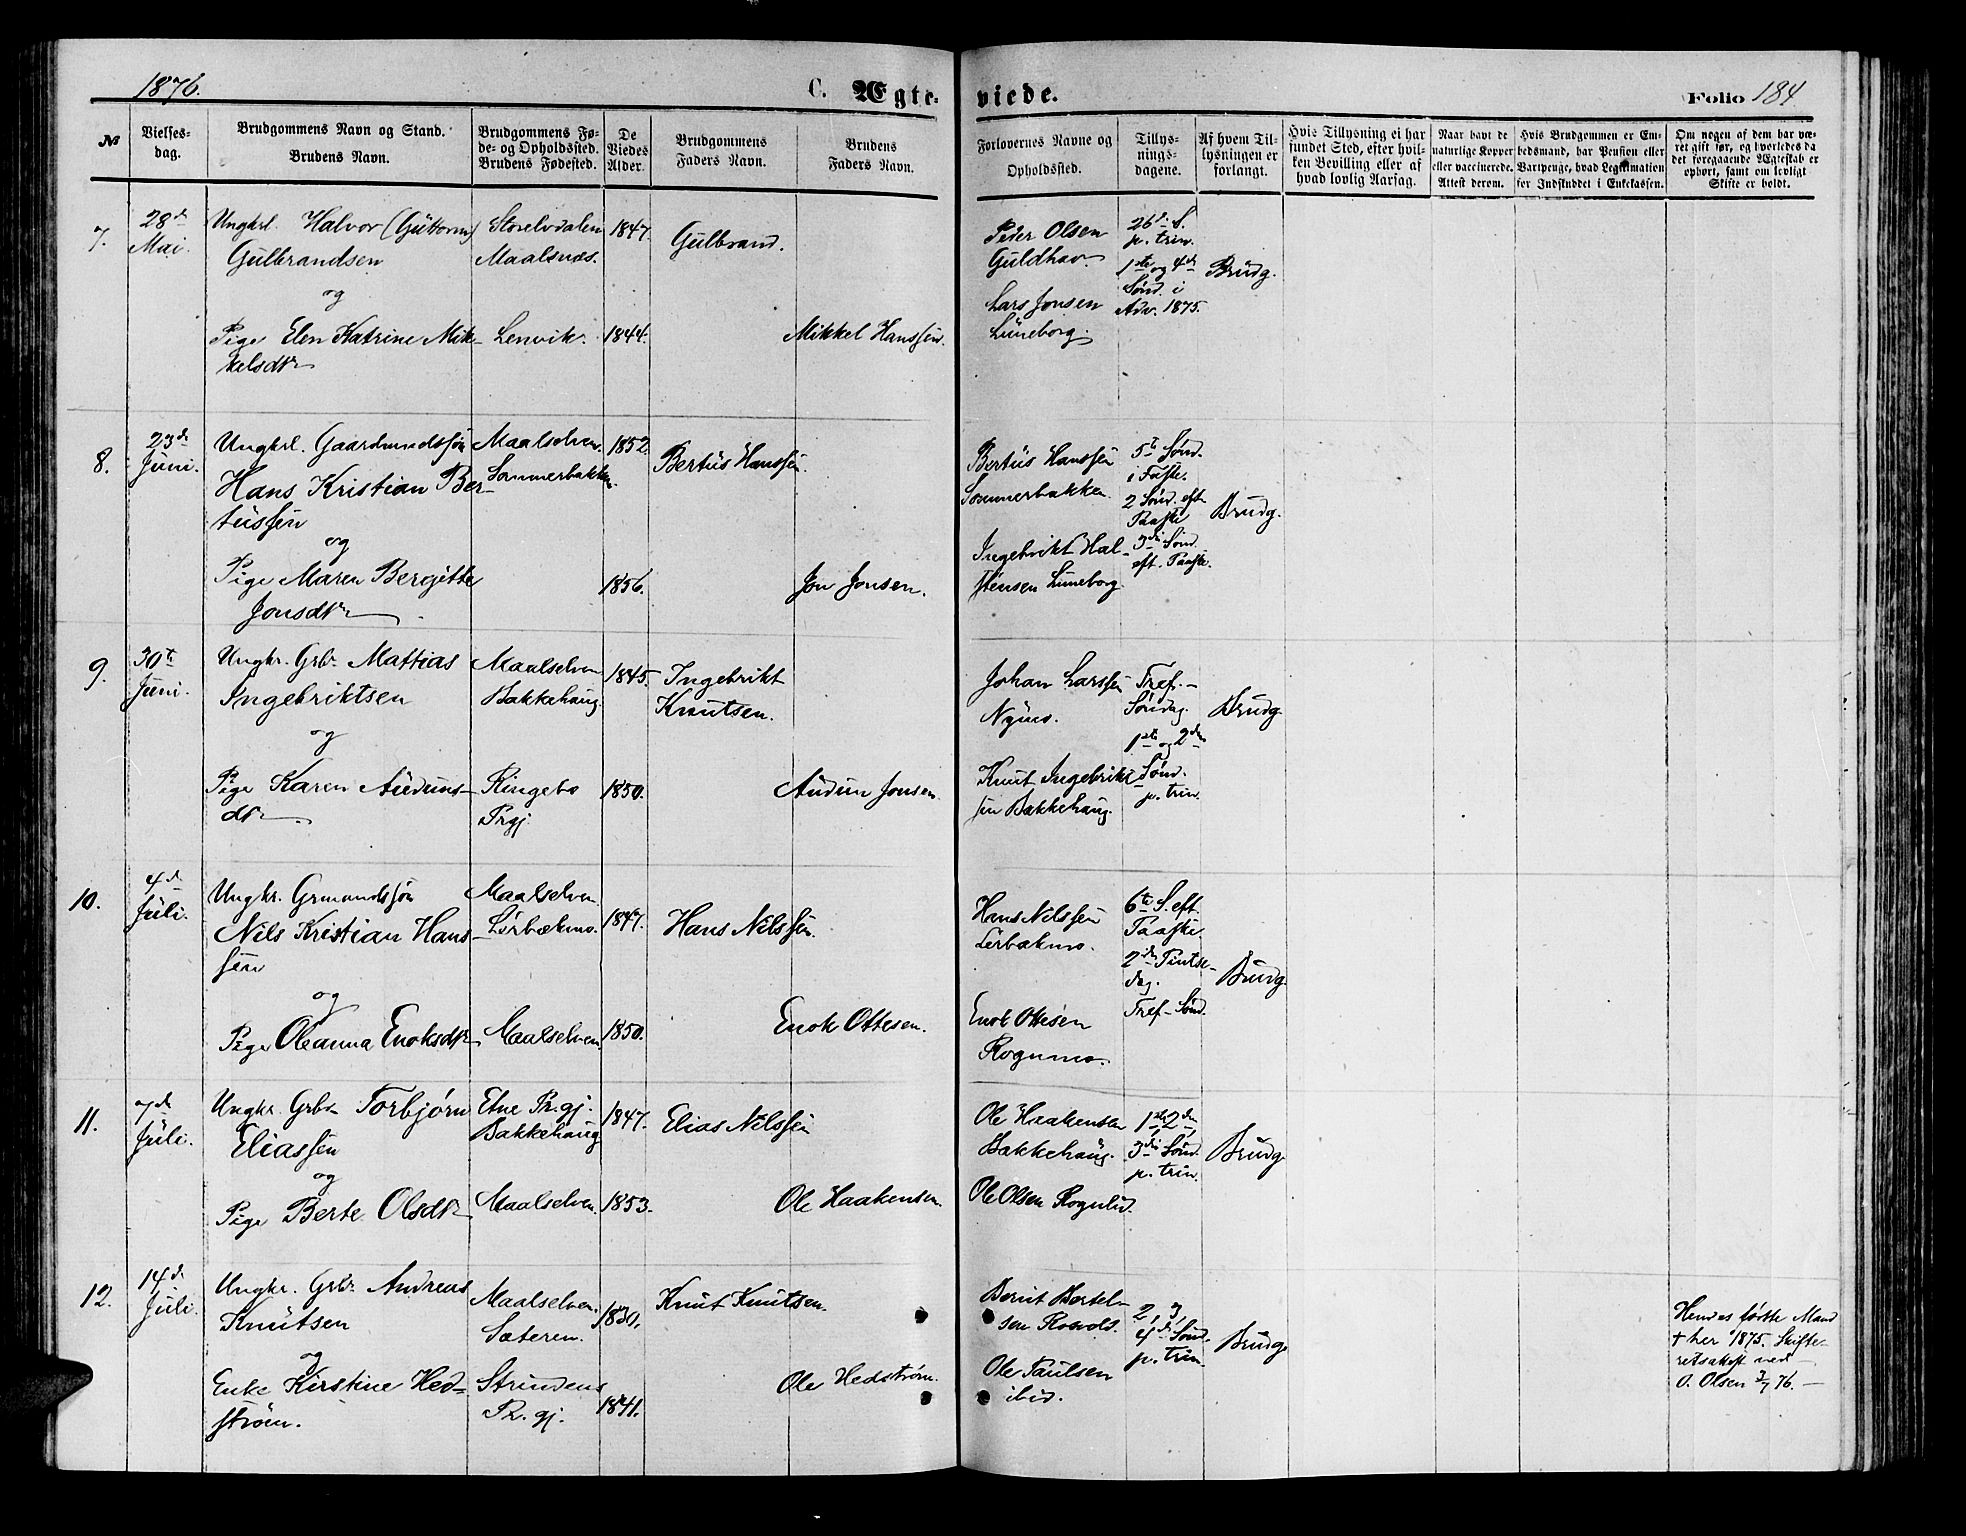 1876.
C. Ægteviede.
Folio 184
№
Vielsesdag.
Brudgommens Navn og Stand.
Brudens Navn.
Brudgommens Føde- og Opholdssted.
Brudens Fødested.
De Viedes Alder.
Brudgommens Faders Navn.
Brudens Faders Navn.
Forlovernes Navne og Opholdssted.
Tillysningsdagene.
Af hvem Tillysningen er forlangt.
Hvis Tillysning ei har fundet Sted, efter hvilken Bevilling eller af hvad lovlig Aarsag.
Naar havt de naturlige Kopper eller vaccinerede. Attest derom.
Hvis Brudgommen er Embedsmand, har Pension eller Vartpenge, hvad Legitimation for Indskuddet i Enkekassen.
Om nogen af dem har været gift før, og hvorledes da det foregaaende Ægteskab er ophørt, samt om lovligt Skifte er holdt.
7.
28de Mai.
Ungkrl. Halvor (Güttorm)
Gulbrandsen
og
Pige Elen Katrine Mik-
kelsdtr
Storelvdalen
Maalsnæs.
Lenvik.
1847.
1844.
Gulbrand.
Mikkel Hanssen.
Peder Olsen
Guldhav.
Lars Jonsen
Lüneborg.
26de S.
p. trin.
1ste og 4de
Sønd. i
Adv. 1875.
Brudg.
8.
23de Juni.
Ungkrl. Gaardmandssøn
Hans Kristian Ber-
tüssen
og
Pige Maren Bergitte
Jonsdtr
Maalselven.
Sommerbakken.
1852.
1856.
Bertüs Hanssen.
Jon Jonsen.
Bertüs Hanssen
Sommerbakken.
Ingebrikt Hal-
stensen Luneborg.
5te Sønd.
i Faste.
2 Sønd. eft.
Paaske
3die Sønd.
eft. Paaske.
Brudg.
9.
30te Juni.
Ungkr. Grbr. Mattias
Ingebriktsen
og
Pige Karen Auduns-
dtr.
Maalselven
Bakkehaug.
Ringebo
Prgj.
1845.
1850.
Ingebrikt
Knutsen.
Audun Jonsen.
Johan Larssen
Nymo.
Knut Ingebrikt-
sen Bakkehaug.
Tref.-
Søndag.
1ste og 2den
Sønd.
p. trin.
Brudg.
10.
4de Juli.
Ungkr. Grmandssøn
Nils Kristian Hans-
sen
og
Pige Oleanna Enoksdtr
Maalselven
Lørbækmo.
Maalselven.
1847.
1850.
Hans Nilssen.
Enok Ottesen.
Hans Nilssen
Lørbækmo.
Enok Ottesen
Rognmo.
6te S. eft.
Paaske.
2den Pintse-
dag.
Tref-Sønd.
Brudg.
11.
7de Juli.
Ungkr. Grbr. Torbjørn
Eliassen
og
Pige Berte Olsdtr
Etne Pr.gj.
Bakkehaug
Maalselven.
1847.
1853.
Elias Nilssen
Ole Haakensen.
Ole Haakensen
Bakkehaug.
Ole Olsen Rognlid.
1ste, 2den,
3die Sønd.
p. trin.
Brudg.
12.
14de Juli.
Ungkr. Grbr. Andreas
Knütsen
og
Enke Kirstine Hed-
strøm.
Maalselven.
Sæteren.
Strindens
Pr.gj.
1830.
1841.
Knut Knutsen.
Ole Hedstrøm.
Bernt Bertel-
sen Rosvold.
Ole Paulsen
ibid.
2, 3,
4de Sønd.
p. trin.
Brudg.
Hendes første Mand
† her 1875. Skifte-
retsattest ved
O. Olsen 3/7 76.